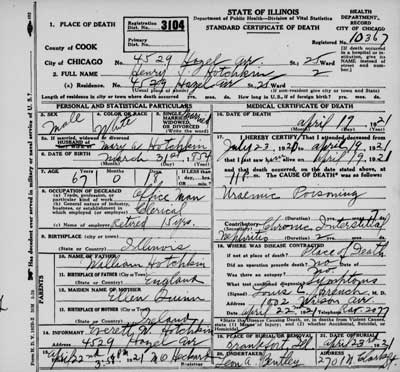 STATE OF ILLINOIS
Department of Public Health—Division of Vital Statistics
STANDARD CERTIFICATE OF DEATH
HEALTH DEPARTMENT, RECORD CITY OF CHICAGO
1. PLACE OF DEATH
Registration Dist. No. 3104
Primary Dist. No.
Registered No. 10367
County of COOK
City of CHICAGO No. 4529 Hazel Av. St; 25 Ward
(If death occurred in a hospital or institution, give its NAME instead of street and number.)
2. FULL NAME Henry J Hotchkin
(a) Residence. No. 4529 Hazel Av St. 25 Ward
(If non-resident give city or town and State)
Length of residence in city or town where death occurred yrs. mos. ds. How long in U.S., if of foreign birth? yrs. mos. ds.
PERSONAL AND STATISTICAL PARTICULARS
MEDICAL CERTIFICATE OF DEATH
3. SEX Male
4. COLOR OR RACE White
5. SINGLE, MARRIED, WIDOWED, OR DIVORCED (Write the word) Married
5a. If married, widowed or divorced
HUSBAND of
Mary A Hotchkin
6. DATE OF BIRTH March 31 1854
7. AGE 67 0
8. OCCUPATION OF DECEASED
(a) Trade, profession, or particular kind of work Office man
(b) General nature of industry, business, or establishment in which employed (or employer) Clerical
(c) Name of employer Retired 15 yrs.
9. BIRTHPLACE (city or town)
(State or Country) Illinois
PARENTS
10. NAME OF FATHER William Hotchkin
11. BIRTHPLACE OF FATHER (City or Town)
(State or Country) England
12. MAIDEN NAME OF MOTHER Ellen Quinn
13. BIRTHPLACE OF MOTHER (City or Town)
(State or Country) Ireland
14. INFORMANT Everett W Hotchkin
(Address) 4529 Hazel Av
15. April 22nd 1921
16. DATE OF DEATH April 19 1921
17. I HEREBY CERTIFY, That I attended deceased from
July 23, 1920, to April 19, 1921
that I last saw him alive on April 19, 1921
and that death occurred, on the date stated above, at
m. The CAUSE OF DEATH* was as follows:
Uraemic Poisoning
(Duration) yrs. mos. ds.
Contributory Chronic Interstitial
Nephritis (Duration)
18. WHERE WAS DISEASE CONTRACTED
if not at place of death? Place of Death
Did an operation precede death? No Date of
Was there an autopsy? No
What test confirmed diagnosis? Symptoms
(Signed) M. D.
(Address) 1022 Wilson Av
Date April 22, 1921 Telephone
*State the Disease Causing Death, or, in deaths from Violent Causes, state (1) Means of Injury; and (2) whether Accidental, Suicidal, or
19. PLACE OF BURIAL, CREMATION OR REMOVAL Frankfort Ill
DATE OF BURIAL April 23rd 1921
20. UNDERTAKER Leon A. Bentley
ADDRESS 2701 N Clark St